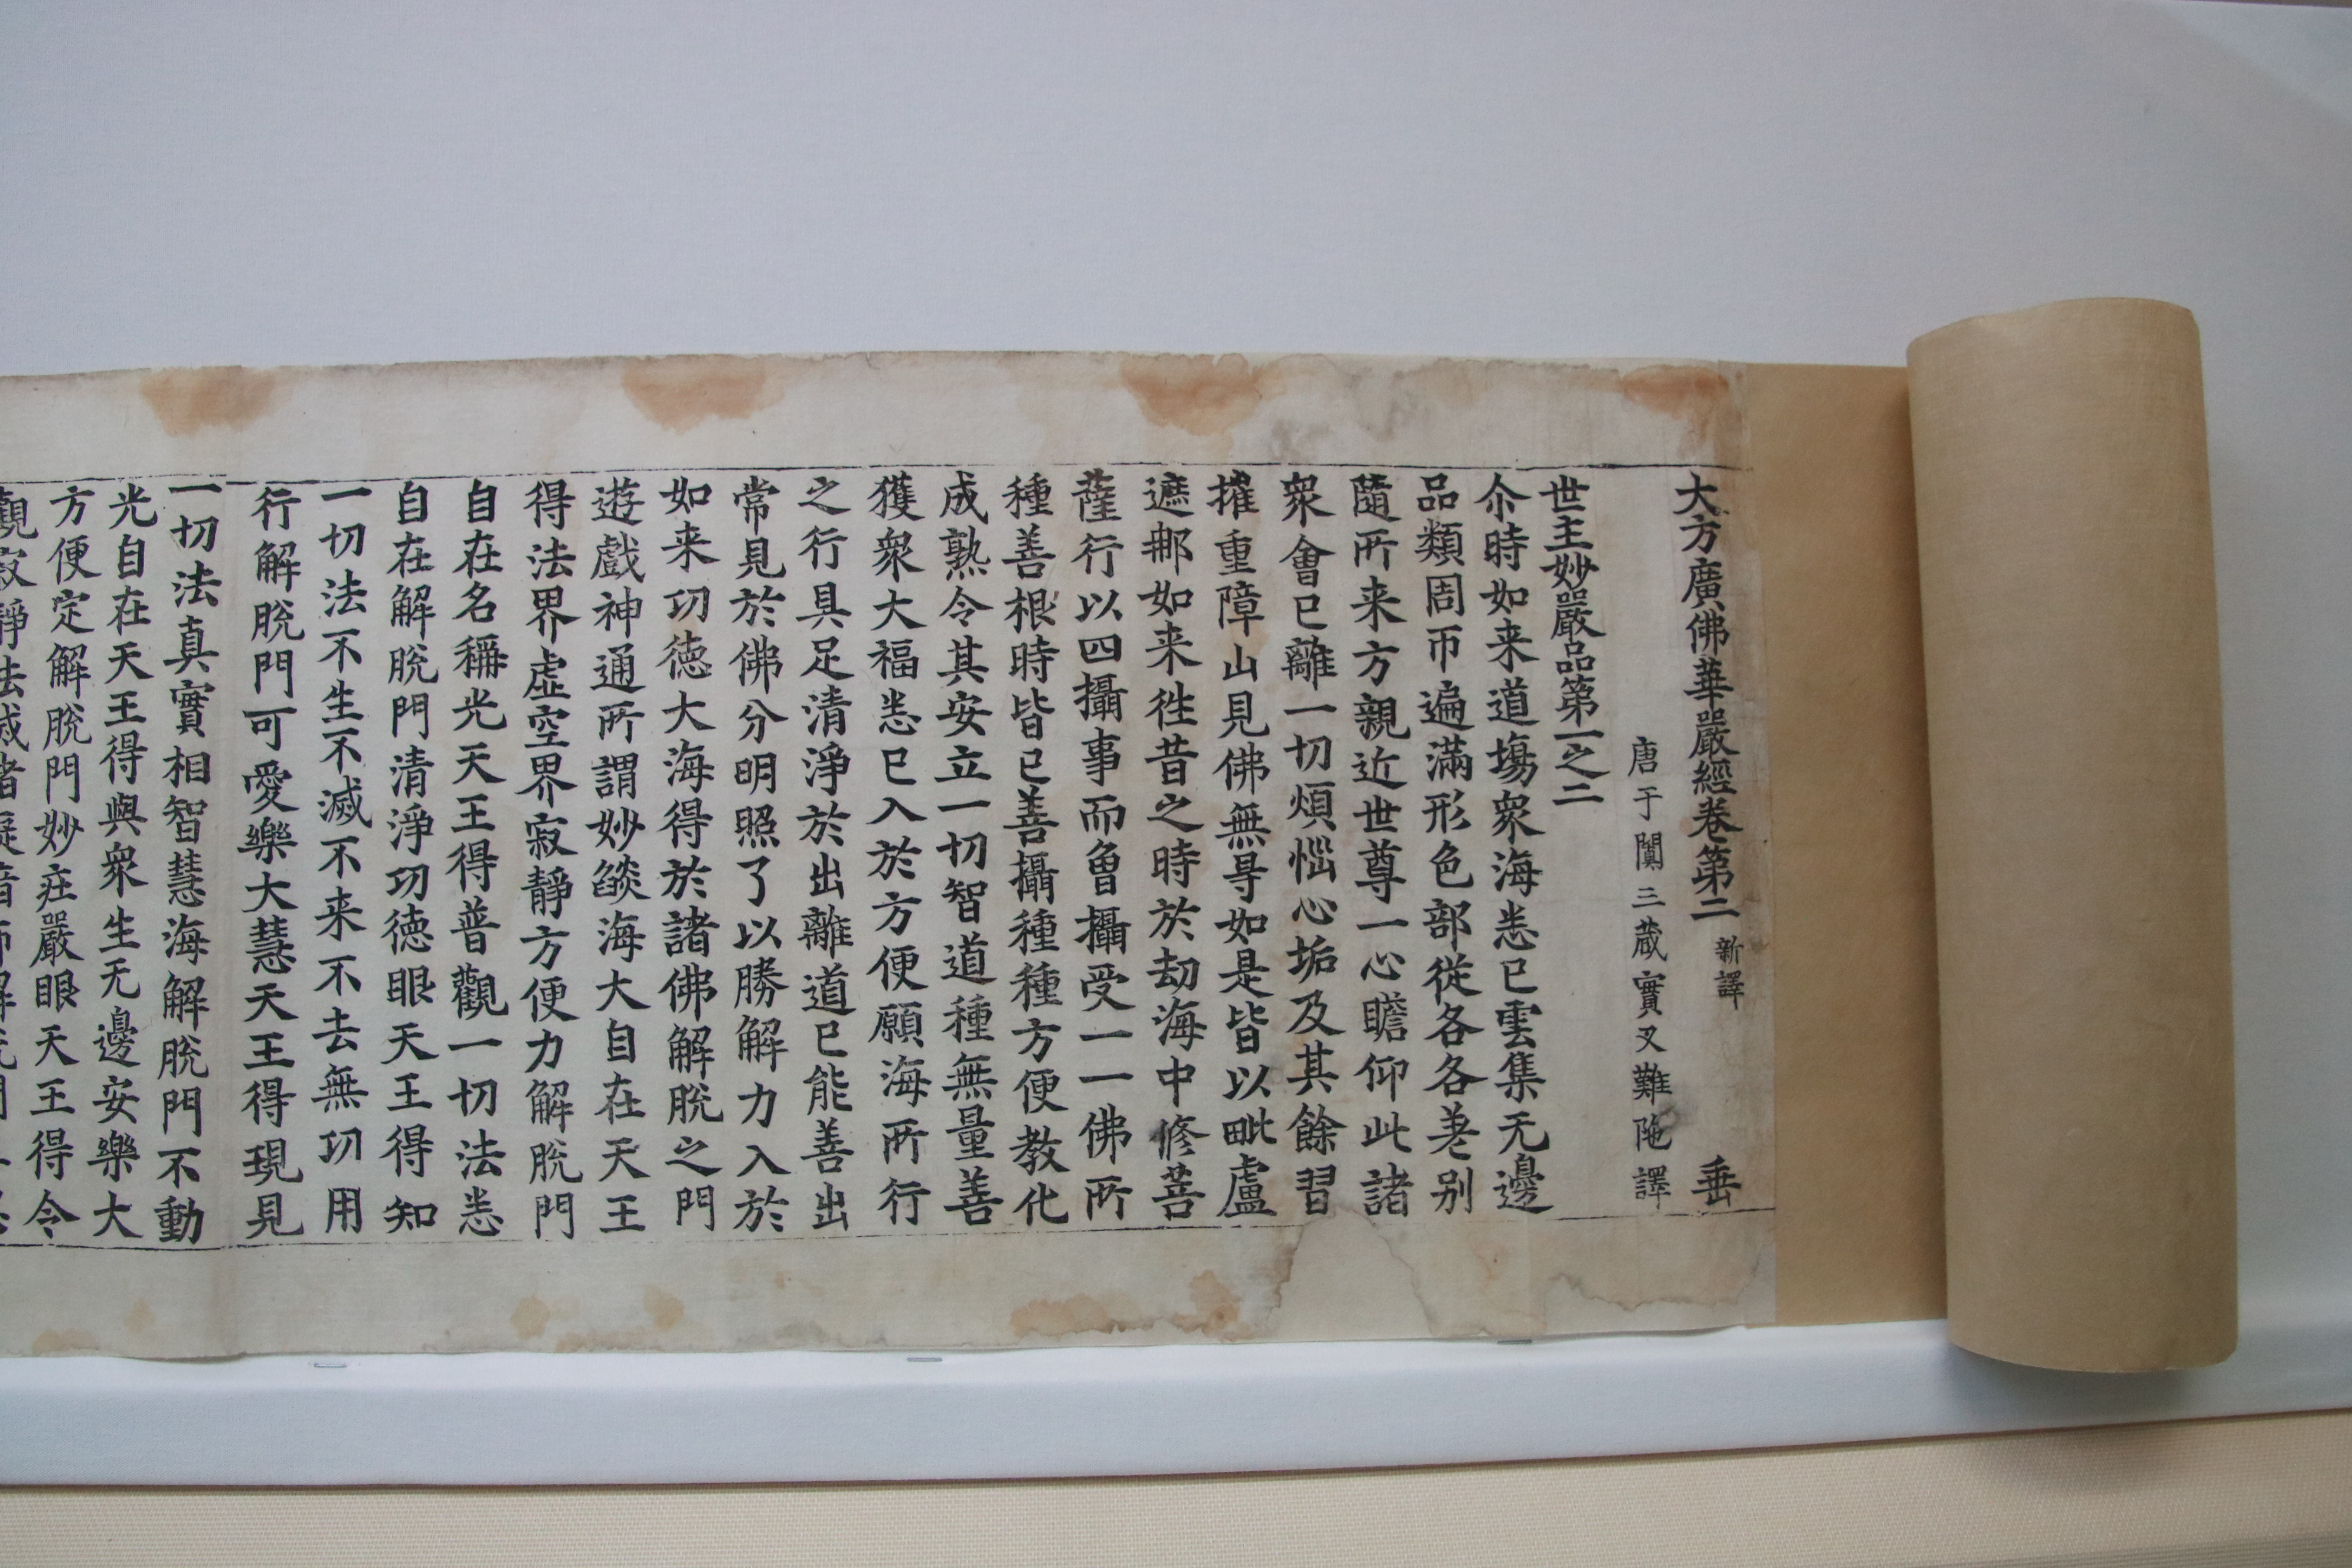 大方廣佛華嚴經卷第二 新譯 垂
唐于闐三蔵實叉難陁譯
世主妙嚴品第一之二
尒時如来道場衆海悉已雲集无邊
品類周帀遍滿形色部從各各差别
隨所来方親近世尊一心瞻仰此諸
衆會已離一切煩惱心垢及其餘習
摧重障山見佛無㝵如是皆以毗盧
遮郍如来徃昔之時於劫海中修菩
薩行以四攝事而曾攝受一一佛所
種善根時皆已善攝種種方便教化
成熟令其安立一切智道種無量善
獲衆大福悉已入於方便願海所行
之行具足清淨於出離道已能善出
常見於佛分明照了以勝解力入於
如来功德大海得於諸佛解脫之門
遊戲神通所謂妙燄海大自在天王
得法界虛空界寂靜方便力解脫門
自在名稱光天王得普觀一切法悉
自在解脫門清淨功德眼天王得知
一切法不生不滅不来不去無功用
行解脫門可愛樂大慧天王得現見
一切法真實相智慧海解脫門不動
光自在天王得與衆生无邊安樂大
方便定解脫門妙莊嚴眼天王得令
觀寂靜法滅諸癡暗怖解脫門